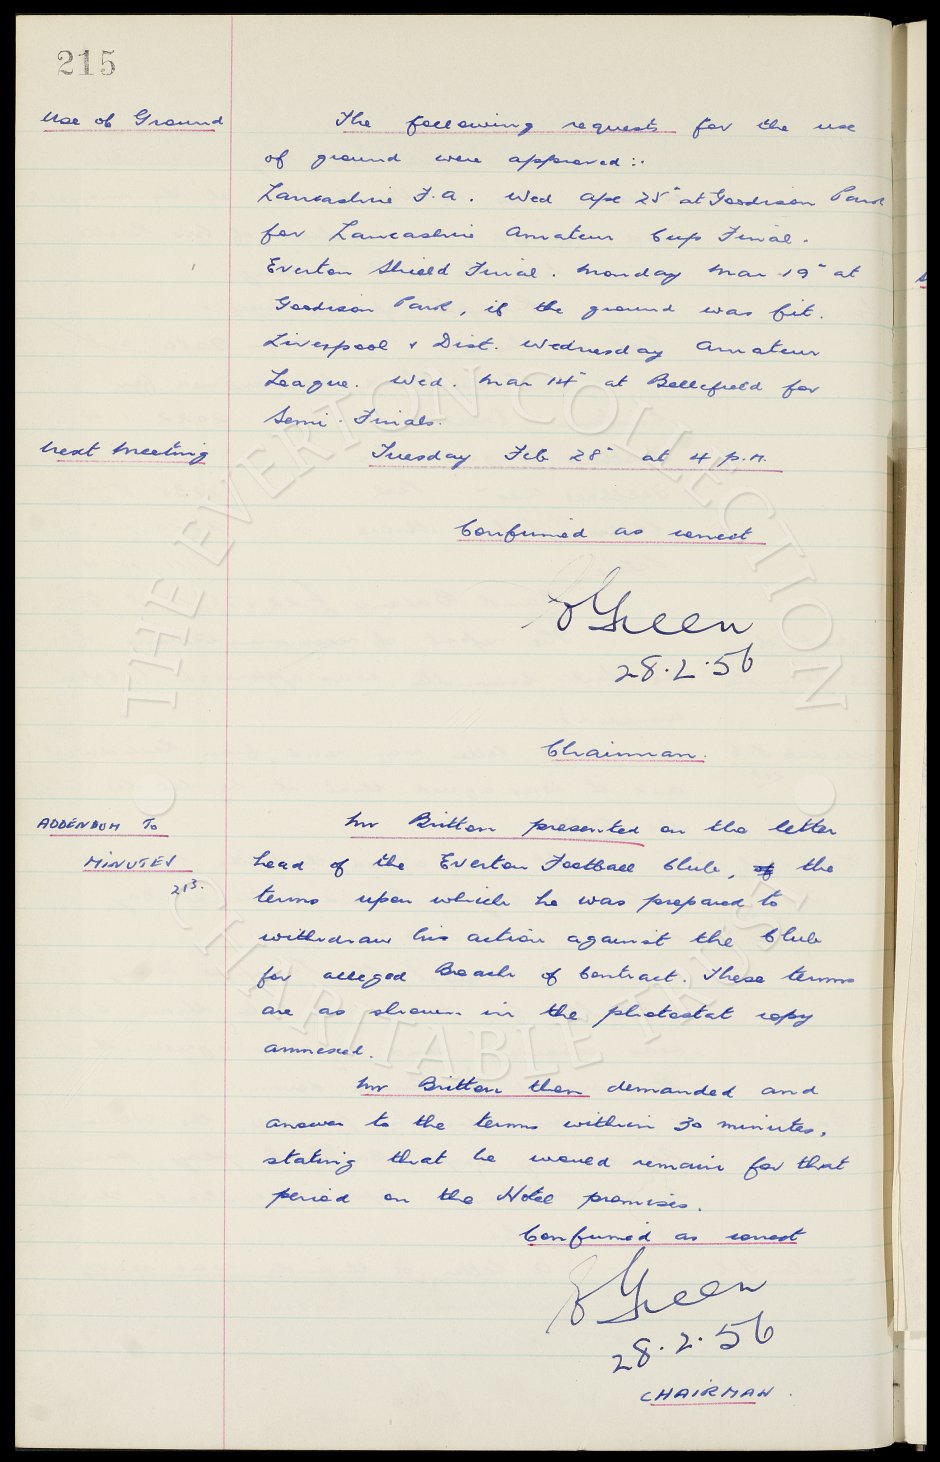 215
Use of Ground
The following requests for the use
of ground were approved :-
Lancashire F.A. Wed Apl 25" at Goodison Park
for Lancashire Amateur Cup Final.
Everton Shield Final. Monday Mar 19" at
Goodison Park, if the ground was fit.
Liverpool & Dist. Wednesday Amateur
League. Wed. Mar 14" at Bellefield for
Semi-Finals.
Next Meeting
Tuesday Feb 28" at 4 p.m.
Confirmed as correct
Green
28.2.56
Chairman.
ADDENDUM To
MINUTES
213.
Mr Britton presented on the letter
head of the Everton Football Club, of the
terms upon which he was prepared to
withdraw his action against the Club
for alleged Breach of Contract. These terms
are as shown in the photostat copy
annexed.
Mr Britton then demanded and
answer to the terms within 30 minutes,
stating that he would remain for that
period on the Hotel premises.
Confirmed as correct
Green
28.2.56
CHAIRMAN.
THE EVERTON COLLECTION
CHARITABLE TRUST